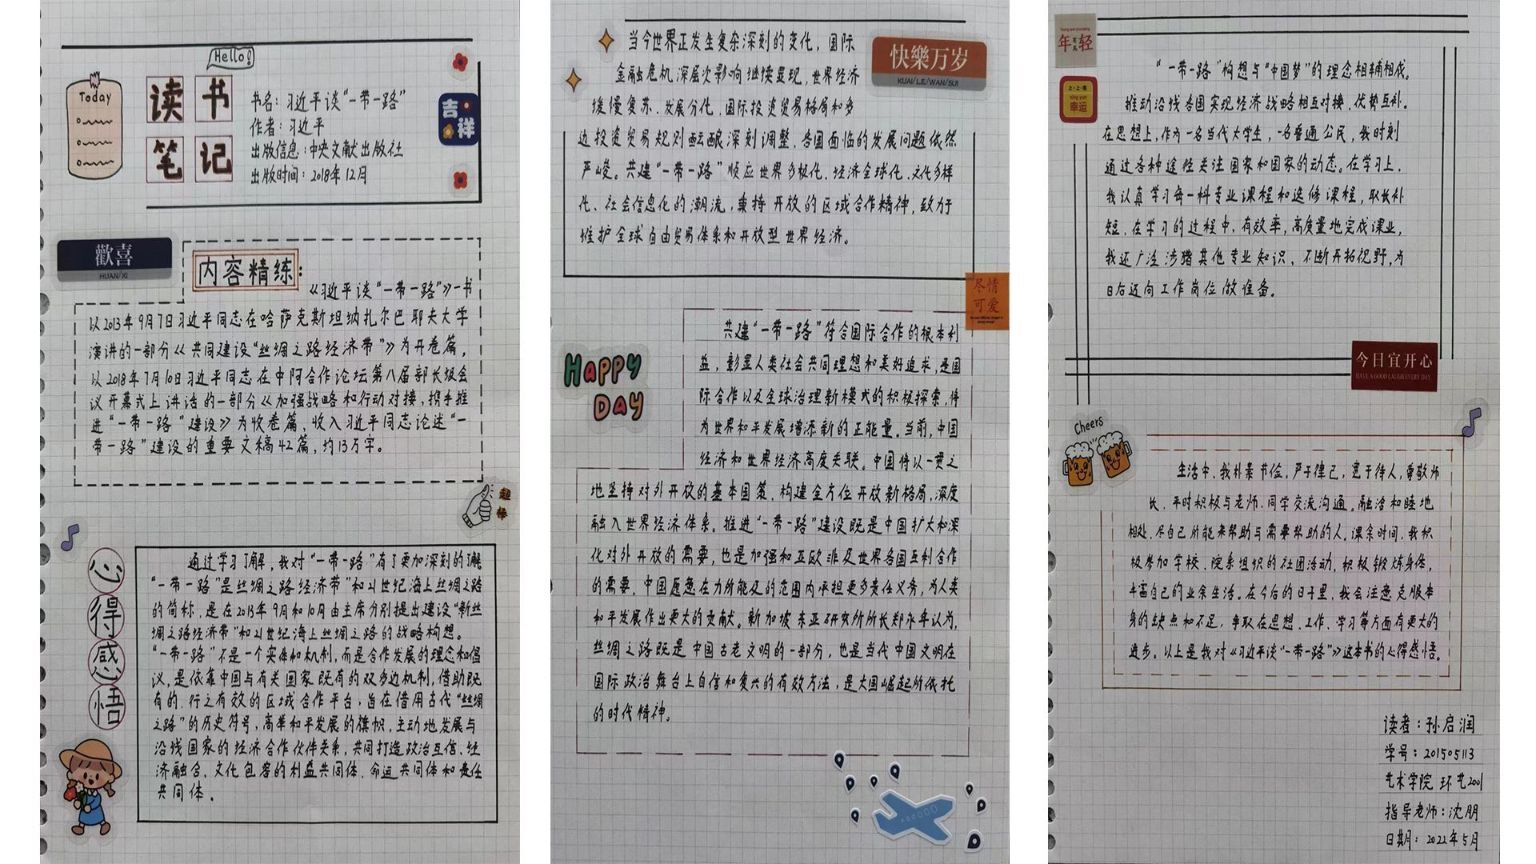 Hello!
Today
读书
笔记
书名：习近平谈“一带一路”
作者：习近平
出版信息：中央文献出版社
出版时间：2018年12月
吉祥
歡喜
HUAN/XI
内容精练：
《习近平谈“一带一路”》一书
以2013年9月7日习近平同志在哈萨克斯坦纳扎尔巴耶夫大学
演讲的一部分《共同建设“丝绸之路经济带”》为开卷篇，
以2018年7月10日习近平同志在中阿合作论坛第八届部长级会
议开幕式上讲话的一部分《加强战略和行动对接，携手推
进“一带一路”建设》为收卷篇，收入习近平同志论述“一
带一路”建设的重要文稿42篇，约13万字。
超棒
心得感悟
通过学习了解，我对“一带一路”有了更加深刻的了解
“一带一路”是丝绸之路经济带”和21世纪海上丝绸之路
的简称，是在2013年9月和10月由主席分别提出建设“新丝
绸之路经济带”和21世纪海上丝绸之路的战略构想。
“一带一路”不是一个实体和机制，而是合作发展的理念和倡
议，是依靠中国与有关国家既有的双多边机制，借助既
有的、行之有效的区域合作平台，旨在借用古代“丝绸
之路”的历史符号，高举和平发展的旗帜，主动地发展与
沿线国家的经济合作伙伴关系，共同打造政治互信、经
济融合、文化包容的利益共同体、命运共同体和责任
共同体。
当今世界正发生复杂深刻的变化，国际
金融危机深层次影响继续显现，世界经济
缓慢复苏、发展分化，国际投资贸易格局和多
边投资贸易规则酝酿深刻调整，各国面临的发展问题依然
严峻。共建“一带一路”顺应世界多极化、经济全球化、文化多样
化、社会信息化的潮流，秉持开放的区域合作精神，致力于
维护全球自由贸易体系和开放型世界经济。
快樂万岁
KUAI/LE/WAN/SUI
尽情
可爱
HAPPY
DAY
共建“一带一路”符合国际合作的根本利
益，彰显人类社会共同理想和美好追求，是国
际合作以及全球治理新模式的积极探索，将
为世界和平发展增添新的正能量。当前，中国
经济和世界经济高度关联。中国将以一贯之
地坚持对外开放的基本国策，构建全方位开放新格局，深度
融入世界经济体系。推进“一带一路”建设既是中国扩大和深
化对外开放的需要，也是加强和亚欧非及世界各国互利合作
的需要，中国愿意在力所能及的范围内承担更多责任义务，为人类
和平发展作出更大的贡献。新加坡东亚研究所所长郑永年认为，
丝绸之路既是中国古老文明的一部分，也是当代中国文明在
国际政治舞台上自信和复兴的有效方法，是大国崛起所依托
的时代精神。
年轻
幸运
“一带一路”构想与“中国梦”的理念相辅相成。
推动沿线各国实现经济战略相互对接、优势互补。
在思想上，作为一名当代大学生，一名普通公民，我时刻
通过各种途径关注国家和国家的动态。在学习上，
我认真学习每一科专业课程和选修课程，取长补
短，在学习的过程中，有效率，高质量地完成课业，
我还广泛涉猎其他专业知识，不断开拓视野，为
日后迈向工作岗位做准备。
今日宜开心
HAVE A GOOD LAUGH EVERY DAY
Cheers
生活中，我朴素节俭，严于律己，宽于待人，尊敬师
长，平时积极与老师、同学交流沟通，融洽和睦地
相处，尽自己所能来帮助与需要帮助的人。课余时间，我积
极参加学校、院系组织的社团活动，积极锻炼身体，
丰富自己的业余生活。在今后的日子里，我会注意克服本
身的缺点和不足，争取在思想、工作、学习等方面有更大的
进步。以上是我对《习近平谈“一带一路”》这本书的心得感悟。
读者：孙启润
学号：201505113
艺术学院 环艺2001
指导老师：沈朋
日期：2022年5月